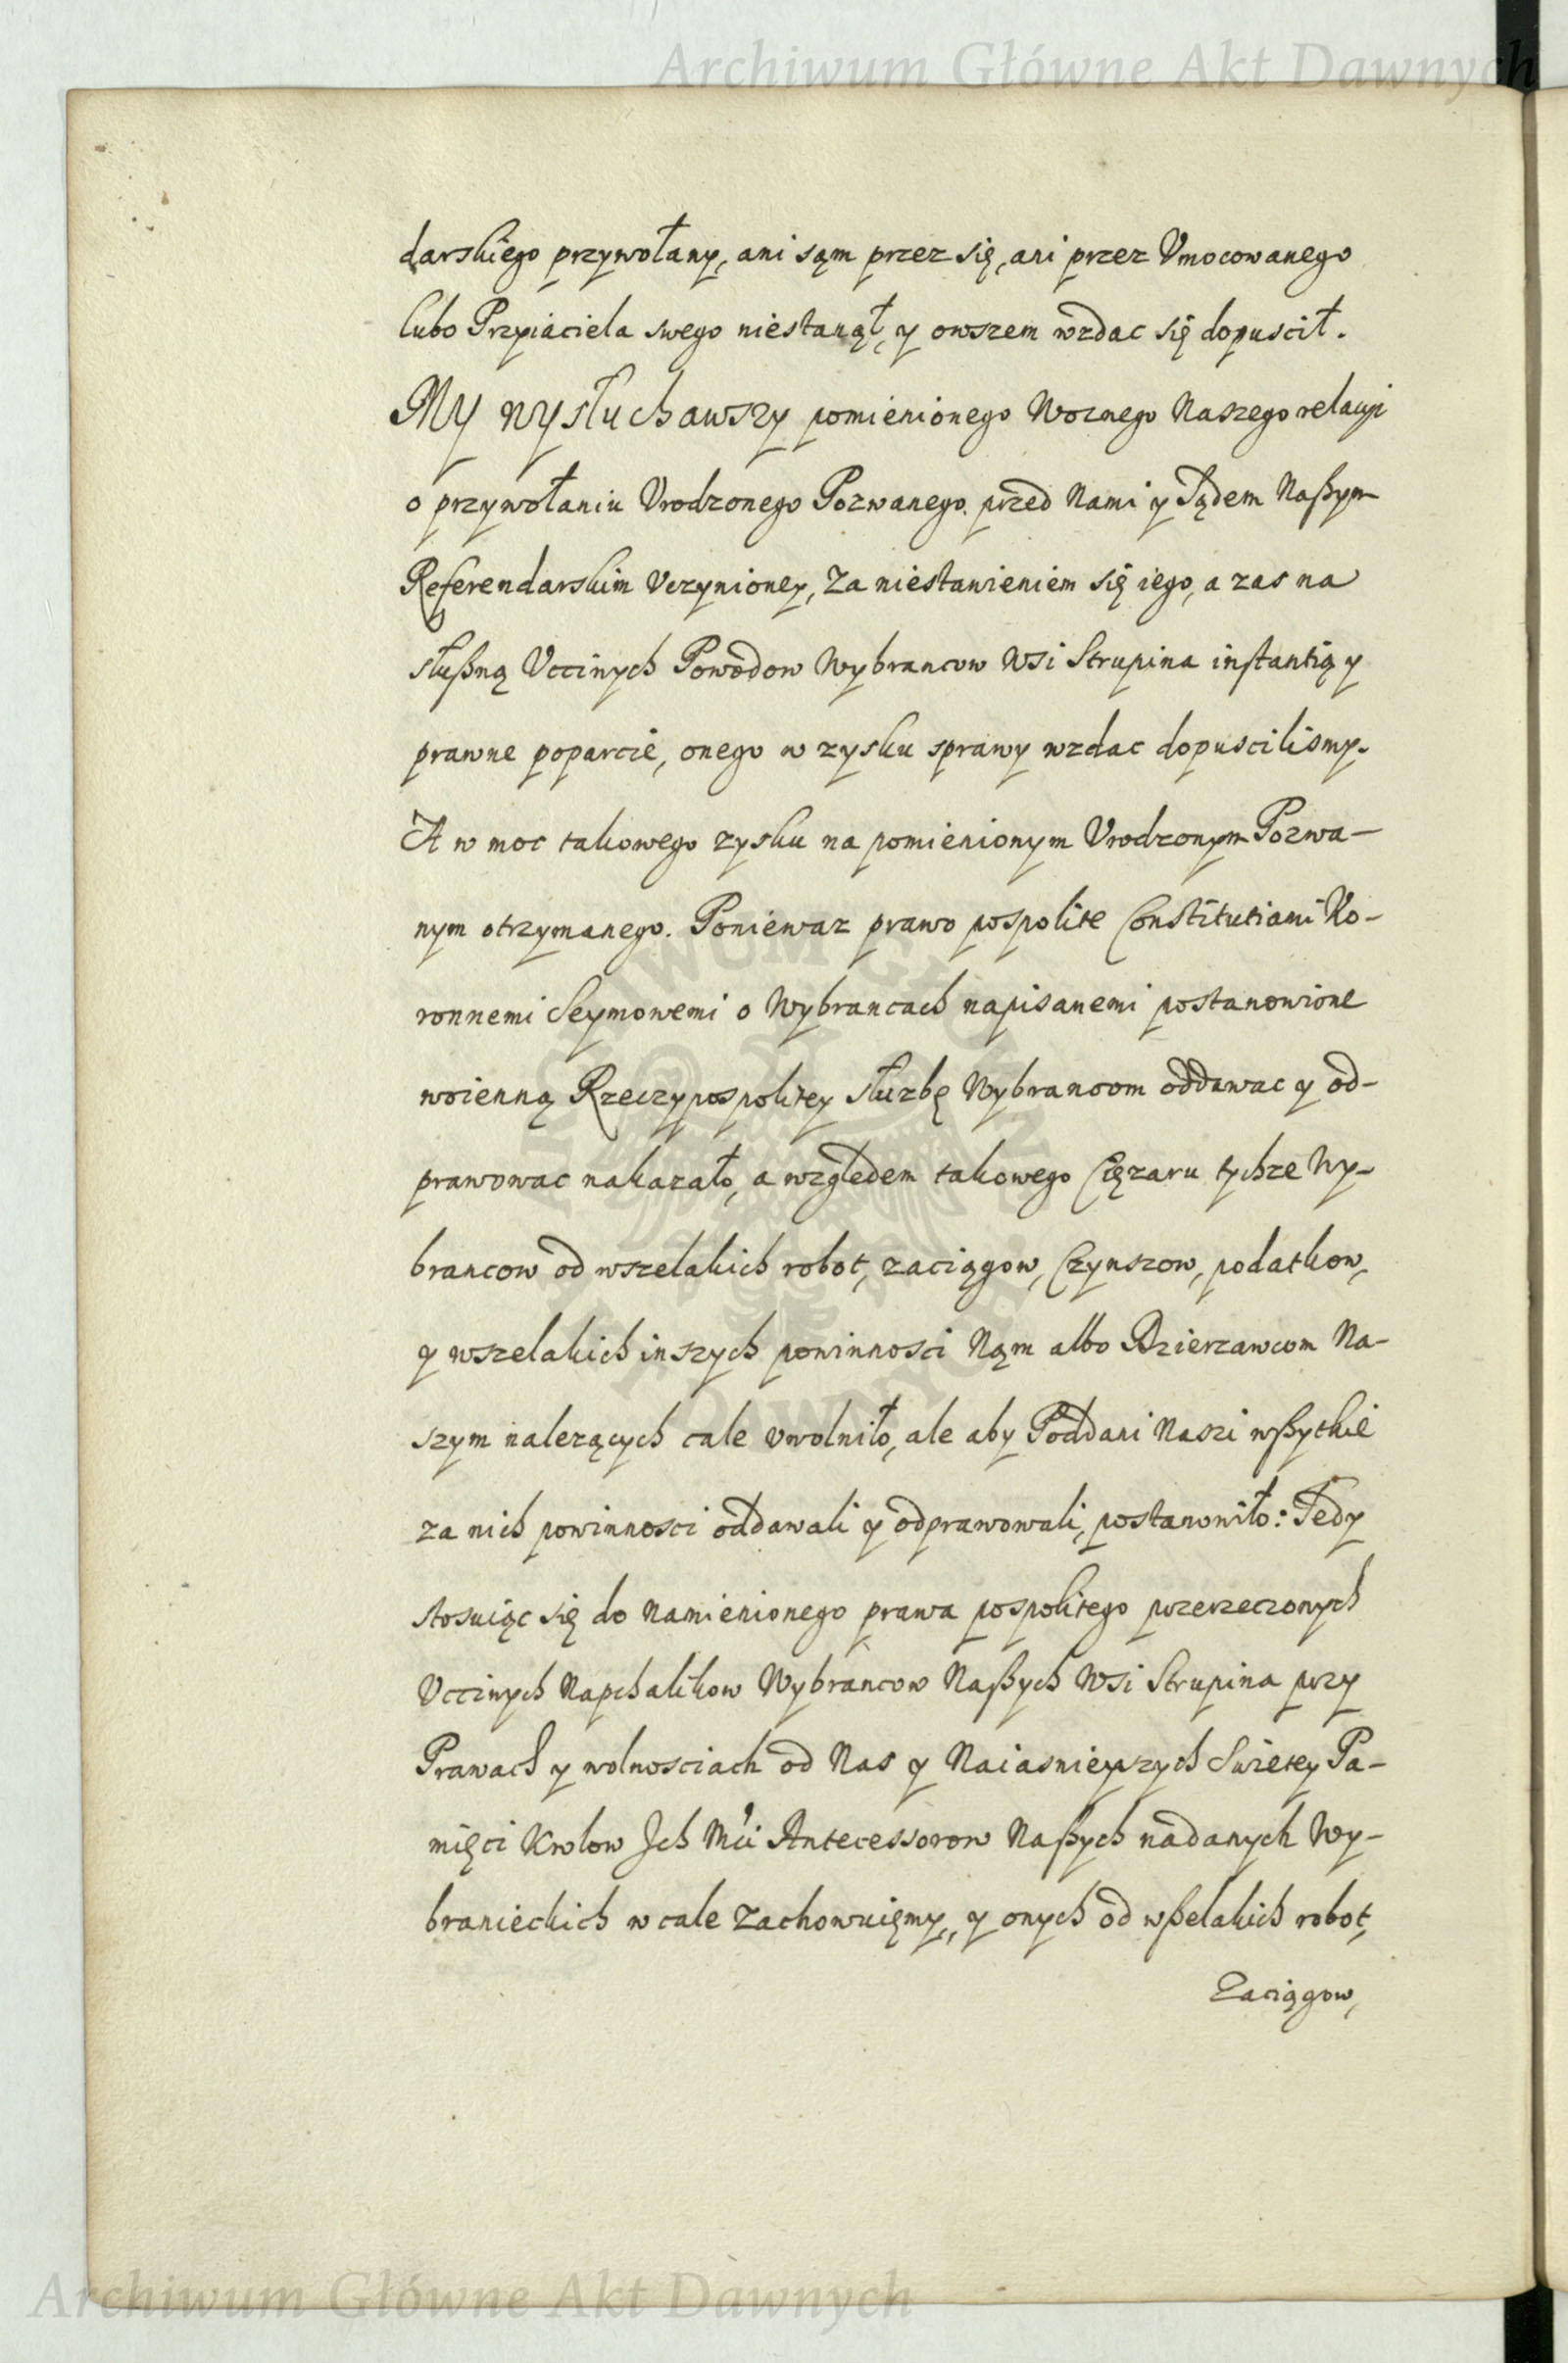 Archiwum Główne Akt Dawnych
darskiego przywołany, ani sąm przez się, ani przez Vmocowanego
lubo Przyiaciela swego niestanął, y owszem wzdac się dopuscił.
My wysłuchawszy pomienionego Woznego Naszego relacyi
o przywołaniu Vrodzonego Pozwanego przed Nami y Sądem Naßym
Referendarskim Vczynioney, Za niestawieniem się iego, a zas na
słußną Vccinych Powodow Wybrancow Wsi Strupina instantią y
prawne poparcie, onego w zysku sprawy wzdac dopuscilismy.
A w moc takowego zysku na pomienionym Vrodzonym Pozwa-
nym otrzymanego. Poniewaz prawo pospolite Constitutiami Ko-
ronnemi Seymowemi o Wybrancach napisanemi postanowione
woienną Rzeczypospolitey słuzbę Wybrancom oddawac y od-
prawowac nakazało, a względem takowego Cięzaru tychze Wy-
brancow od wszelakich robot, zaciągow, Czynszow, podatkow,
y wszelakich inszych powinnosci Nąm albo Dzierzawcom Na-
szym nalezących cale vwolniło, ale aby Poddani Naszi wßytkie
za nich powinnosci oddawali y odprawowali, postanowiło: Tedy
stosuiąc się do namienionego prawa pospolitego przerzeczonych
Vccinych Napchalikow Wybrancow Naßych Wsi Strupina przy
Prawach y wolnosciach od Nas y Naiasnieyszych Swietey Pa-
mięci Krolow Jch Mci Antecessorow Naßych nadanych Wy-
branieckich w cale Zachowuięmy, y onych od wßelakich robot,
Zaciągow,
Archiwum Główne Akt Dawnych